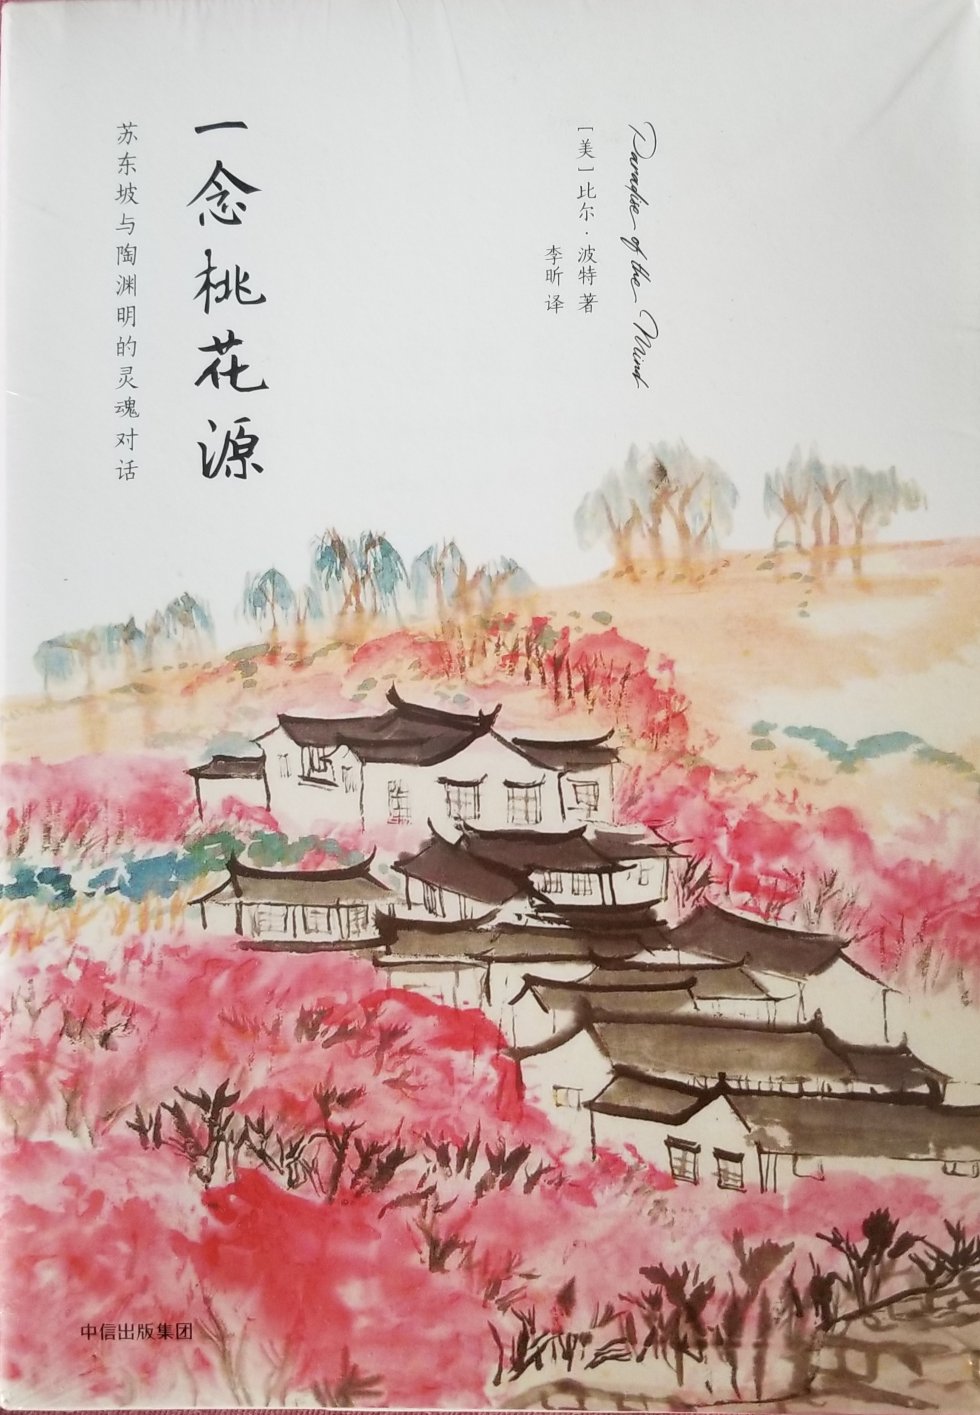 一念桃花源
苏东坡与陶渊明的灵魂对话
Paradise of the Mind
[美]比尔·波特 著
李昕 译
中信出版集团